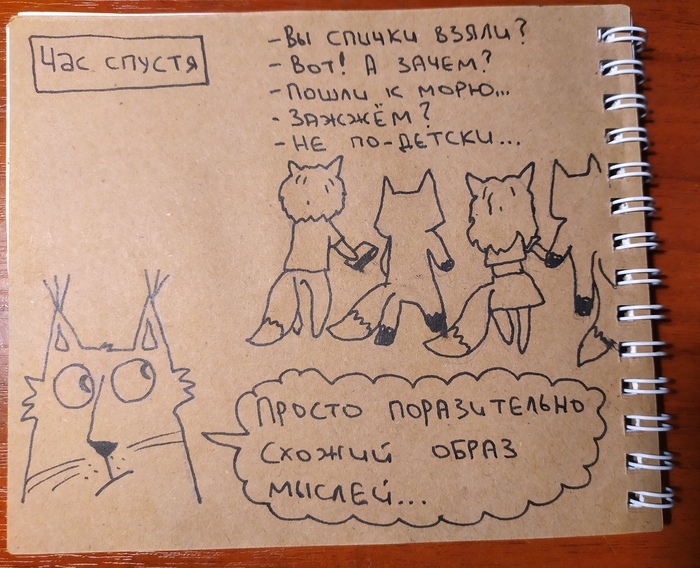 Час спустя
- Вы спички взяли?
- Вот! А зачем?
- Пошли к морю...
- Зажжём?
- Не по-детски...
Просто поразительно
схожий образ
мыслей...